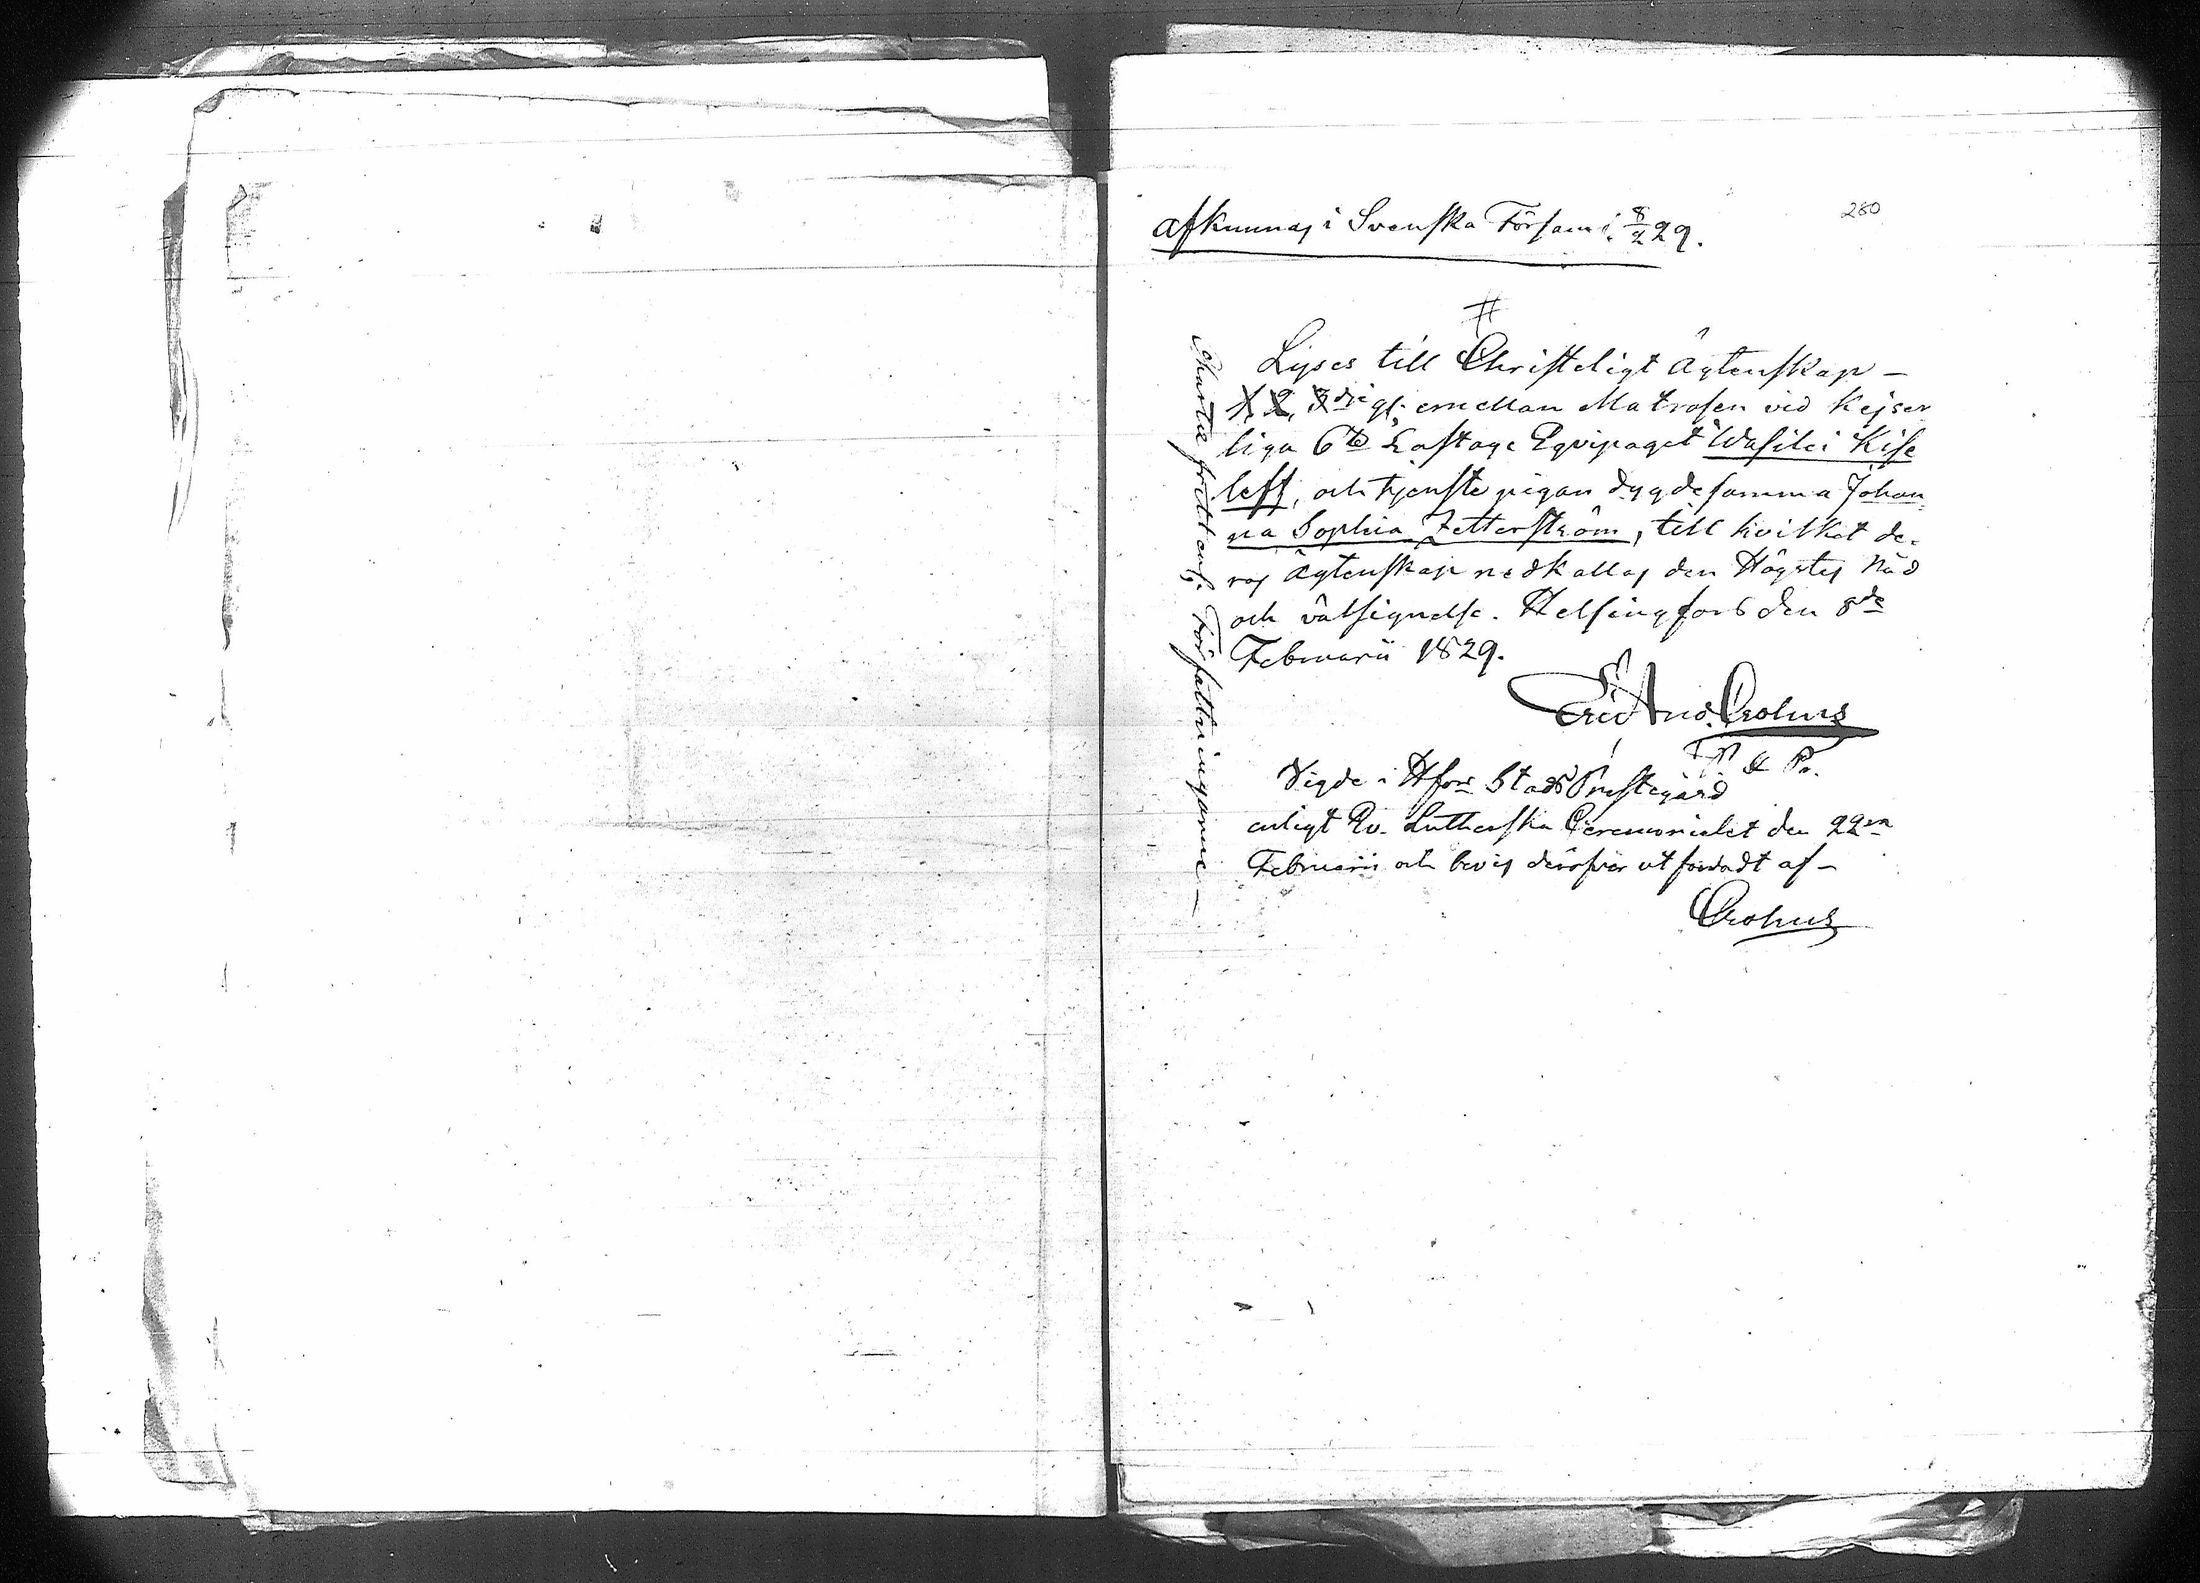 280
afkunnas i Svenska Församl. 8/2 29.
#
Lyses till Christeligt Ägtenskap –
1, 2, 3dje gg. emellan Matrosen vid Kejser
liga 6te Lastage Eqvipaget Wasilei Kise
leff, och tjenste pigan dygdesamma Johan
na Sophia Zetterström, till hvilket de-
ras Ägtenskap nedkallas den Högstes Nåd
och välsignelse. Helsingfors den 8de
Februarii 1829.
Eric And. Crohns
Vigde i Hfors Stads Prestegård
enligt Ev. Lutherska Ceremonielet den 22ra
Februarii och bevis deröfver utfärdadt af –
Crohns
Charta fritt enl. Författningarne –